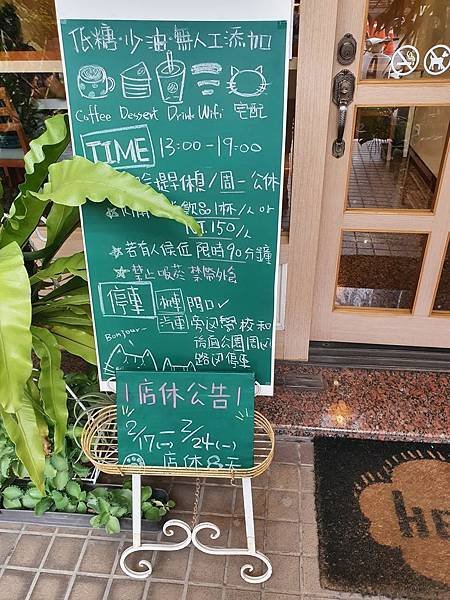 低糖·少油·無人工添加
Coffee Dessert Drink Wifi 宅配
TIME 13:00-19:00
周一公休
飲品1杯/人 or
150/人
☆若有人候位 限時90分鐘
☆禁止吸菸 禁帶外食
停車 機車 門口✓
汽車 旁区學校和
後面公園周邊
路边停車
Bonjour~
！店休公告！
2/17(一)-2/24(一)
店休8天
he